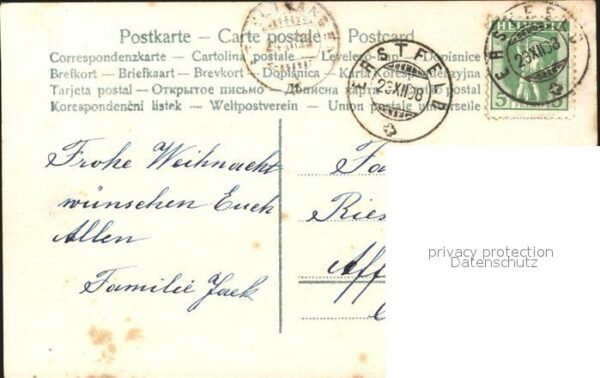 Postkarte — Carte postale — Postcard
Correspondenzkarte — Cartolina postale — Levelező-Lap — Dopisnice
Brefkort — Briefkaart — Brevkort — Dopisnica — Karta Korespondencyjna
Tarjeta postal — Открытое письмо — Дописна карта — Bilhete postal
Korespondenční lístek — Weltpostverein — Union postale universelle
ERSTFELD
23.XII.08
HELVETIA
5
ERSTFELD
23.XII.08
Frohe Weihnacht
wünschen Euch
Allen
Familie Jack
Fa
Ries
Aff
privacy protection
Datenschutz